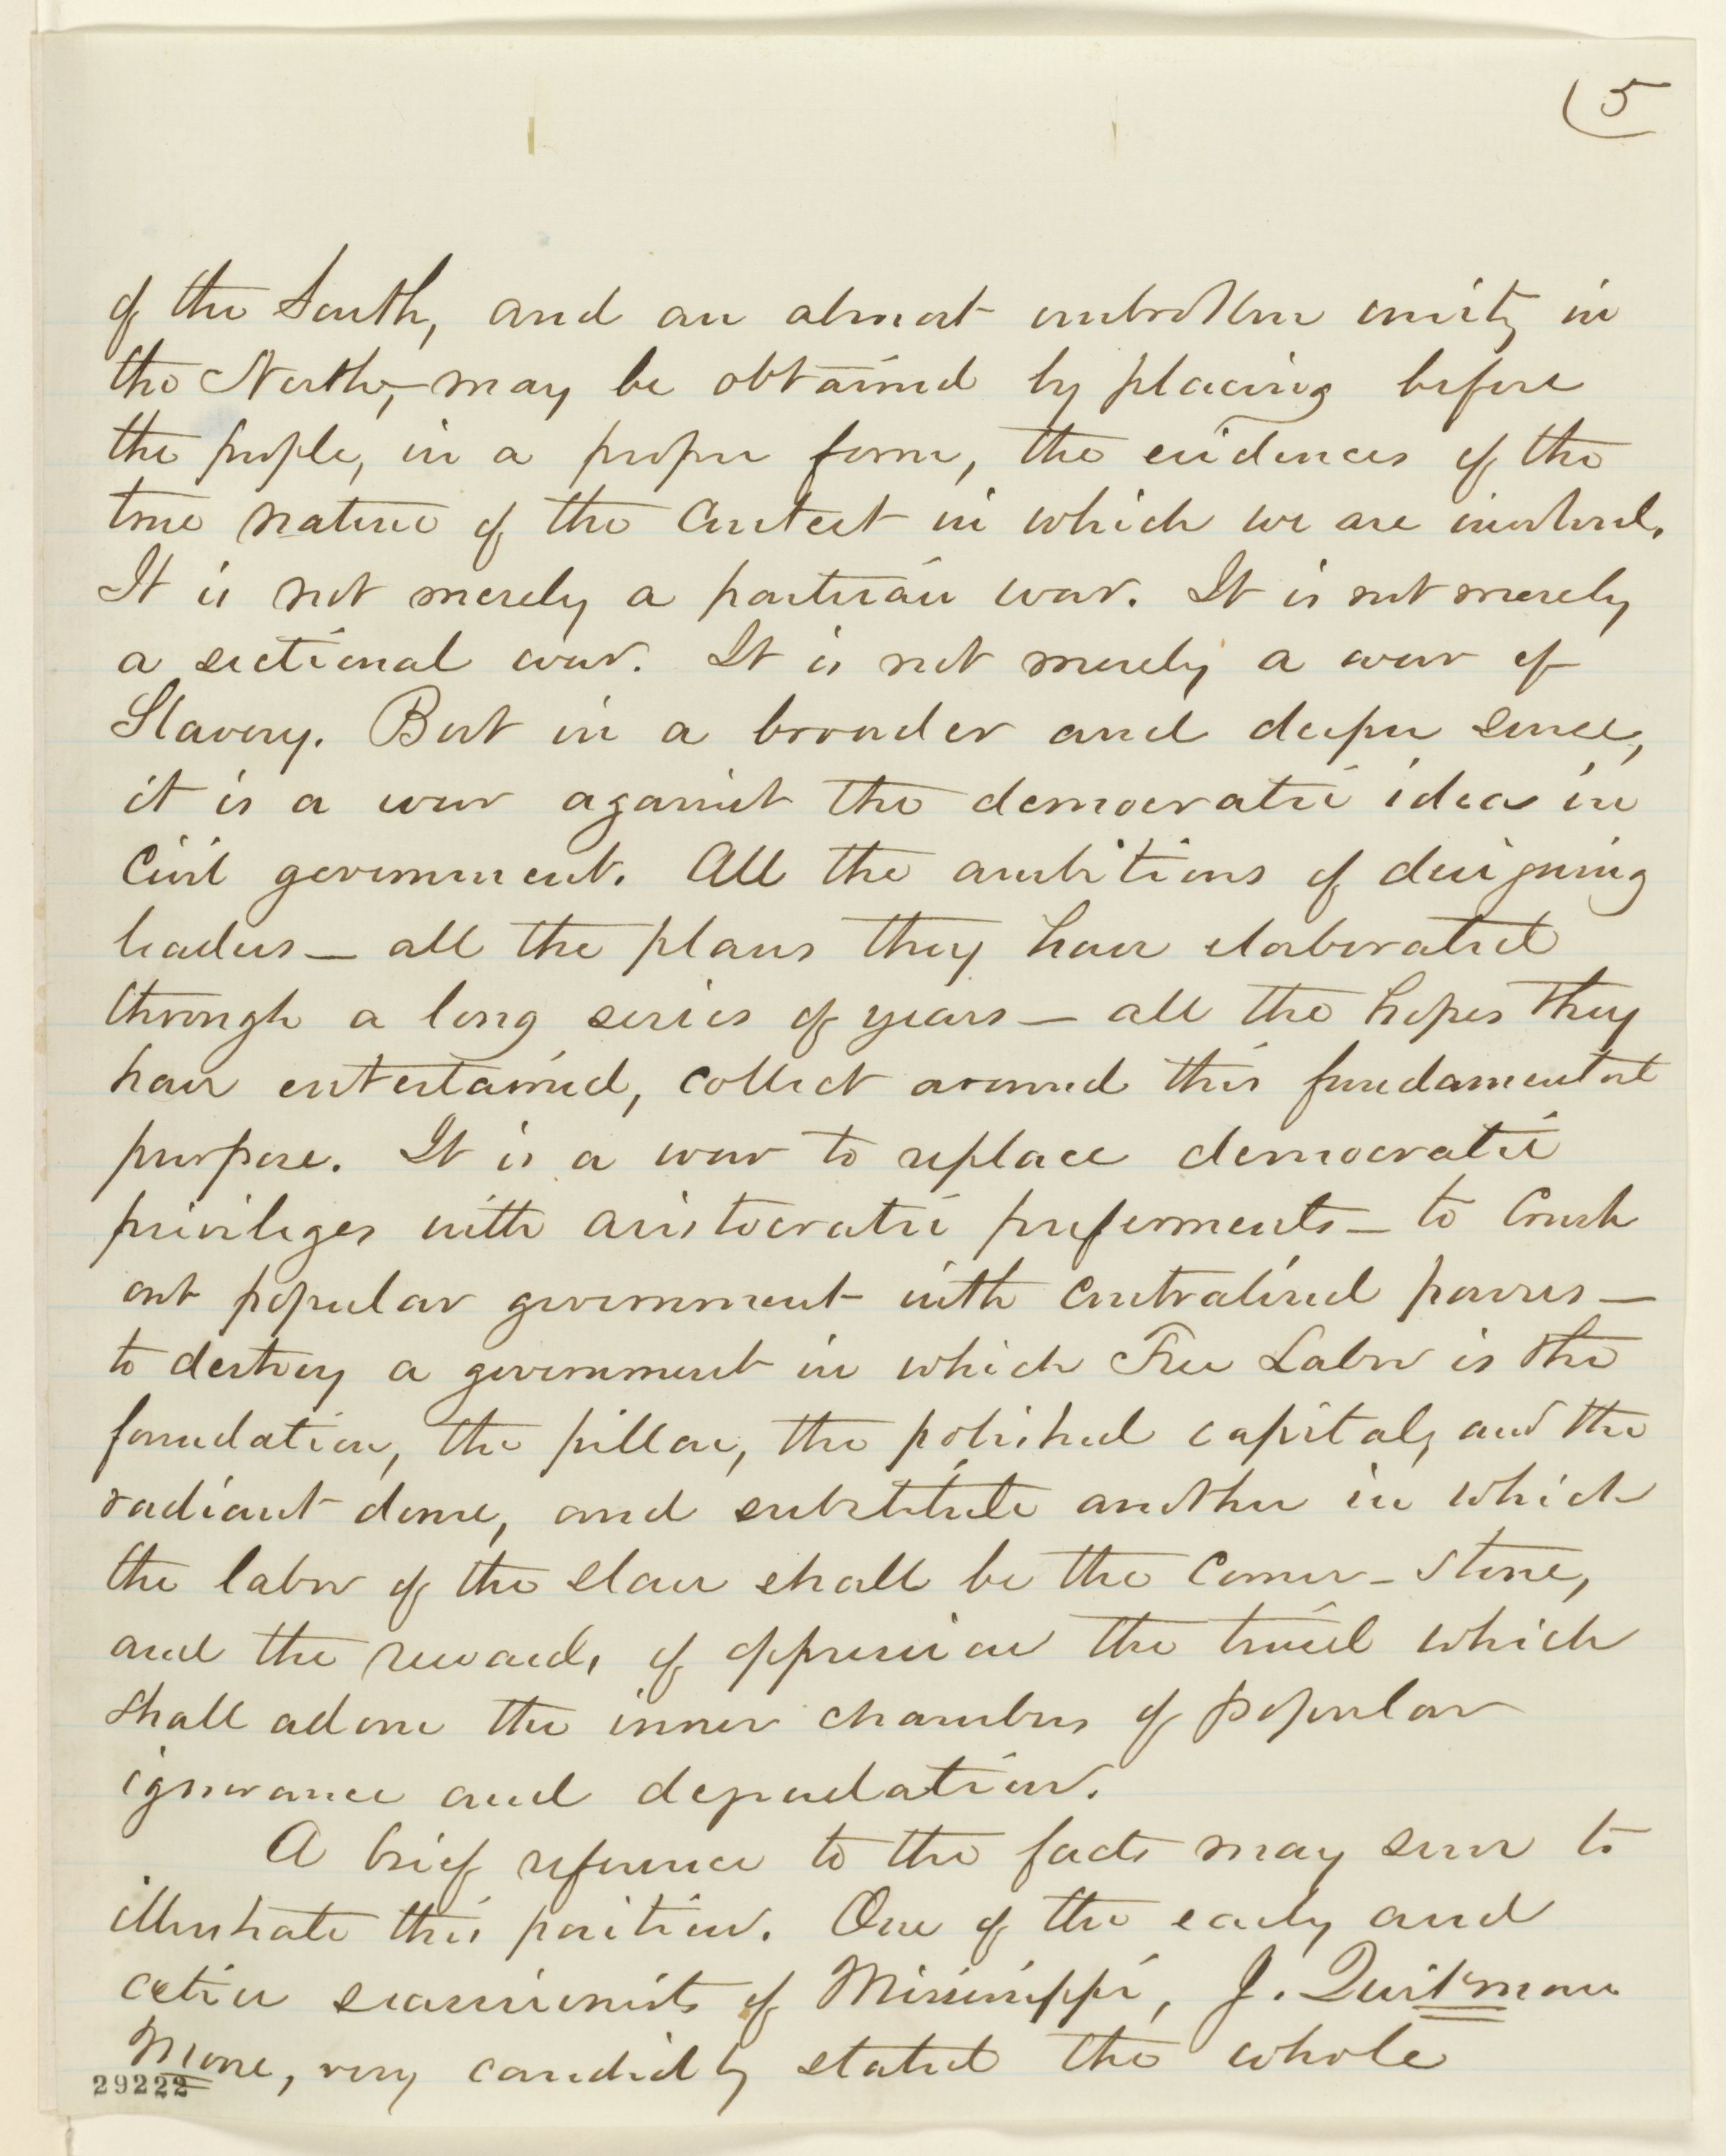 (5
of the South, and an almost unbroken unity in
the North, may be obtained by placing before
the people, in a proper form, the evidences of the
true nature of the contest in which we are involved.
It is not merely a partisan war. It is not merely
a sectional war. It is not merely a war of
Slavery. But in a broader and deeper sense,
it is a war against the democratic idea in
Civil government. All the ambitions of designing
leaders — all the plans they have elaborated
through a long series of years — all the hopes they
have entertained, collect around this fundamental
purpose. It is a war to replace democratic
privileges with aristocratic preferments — to Crush
out popular government with centralized powers —
to destroy a government in which Free Labor is the
foundation, the pillar, the polished capital, and the
radiant dome, and substitute another in which
the labor of the slave shall be the Corner-Stone,
and the rewards of oppression the tinsel which
shall adorn the inner chambers of popular
ignorance and degradation.
A brief reference to the facts may serve to
illustrate this position. One of the early and
active secessionists of Mississippi, J. Quitman
Moore, very candidly stated the whole
29222